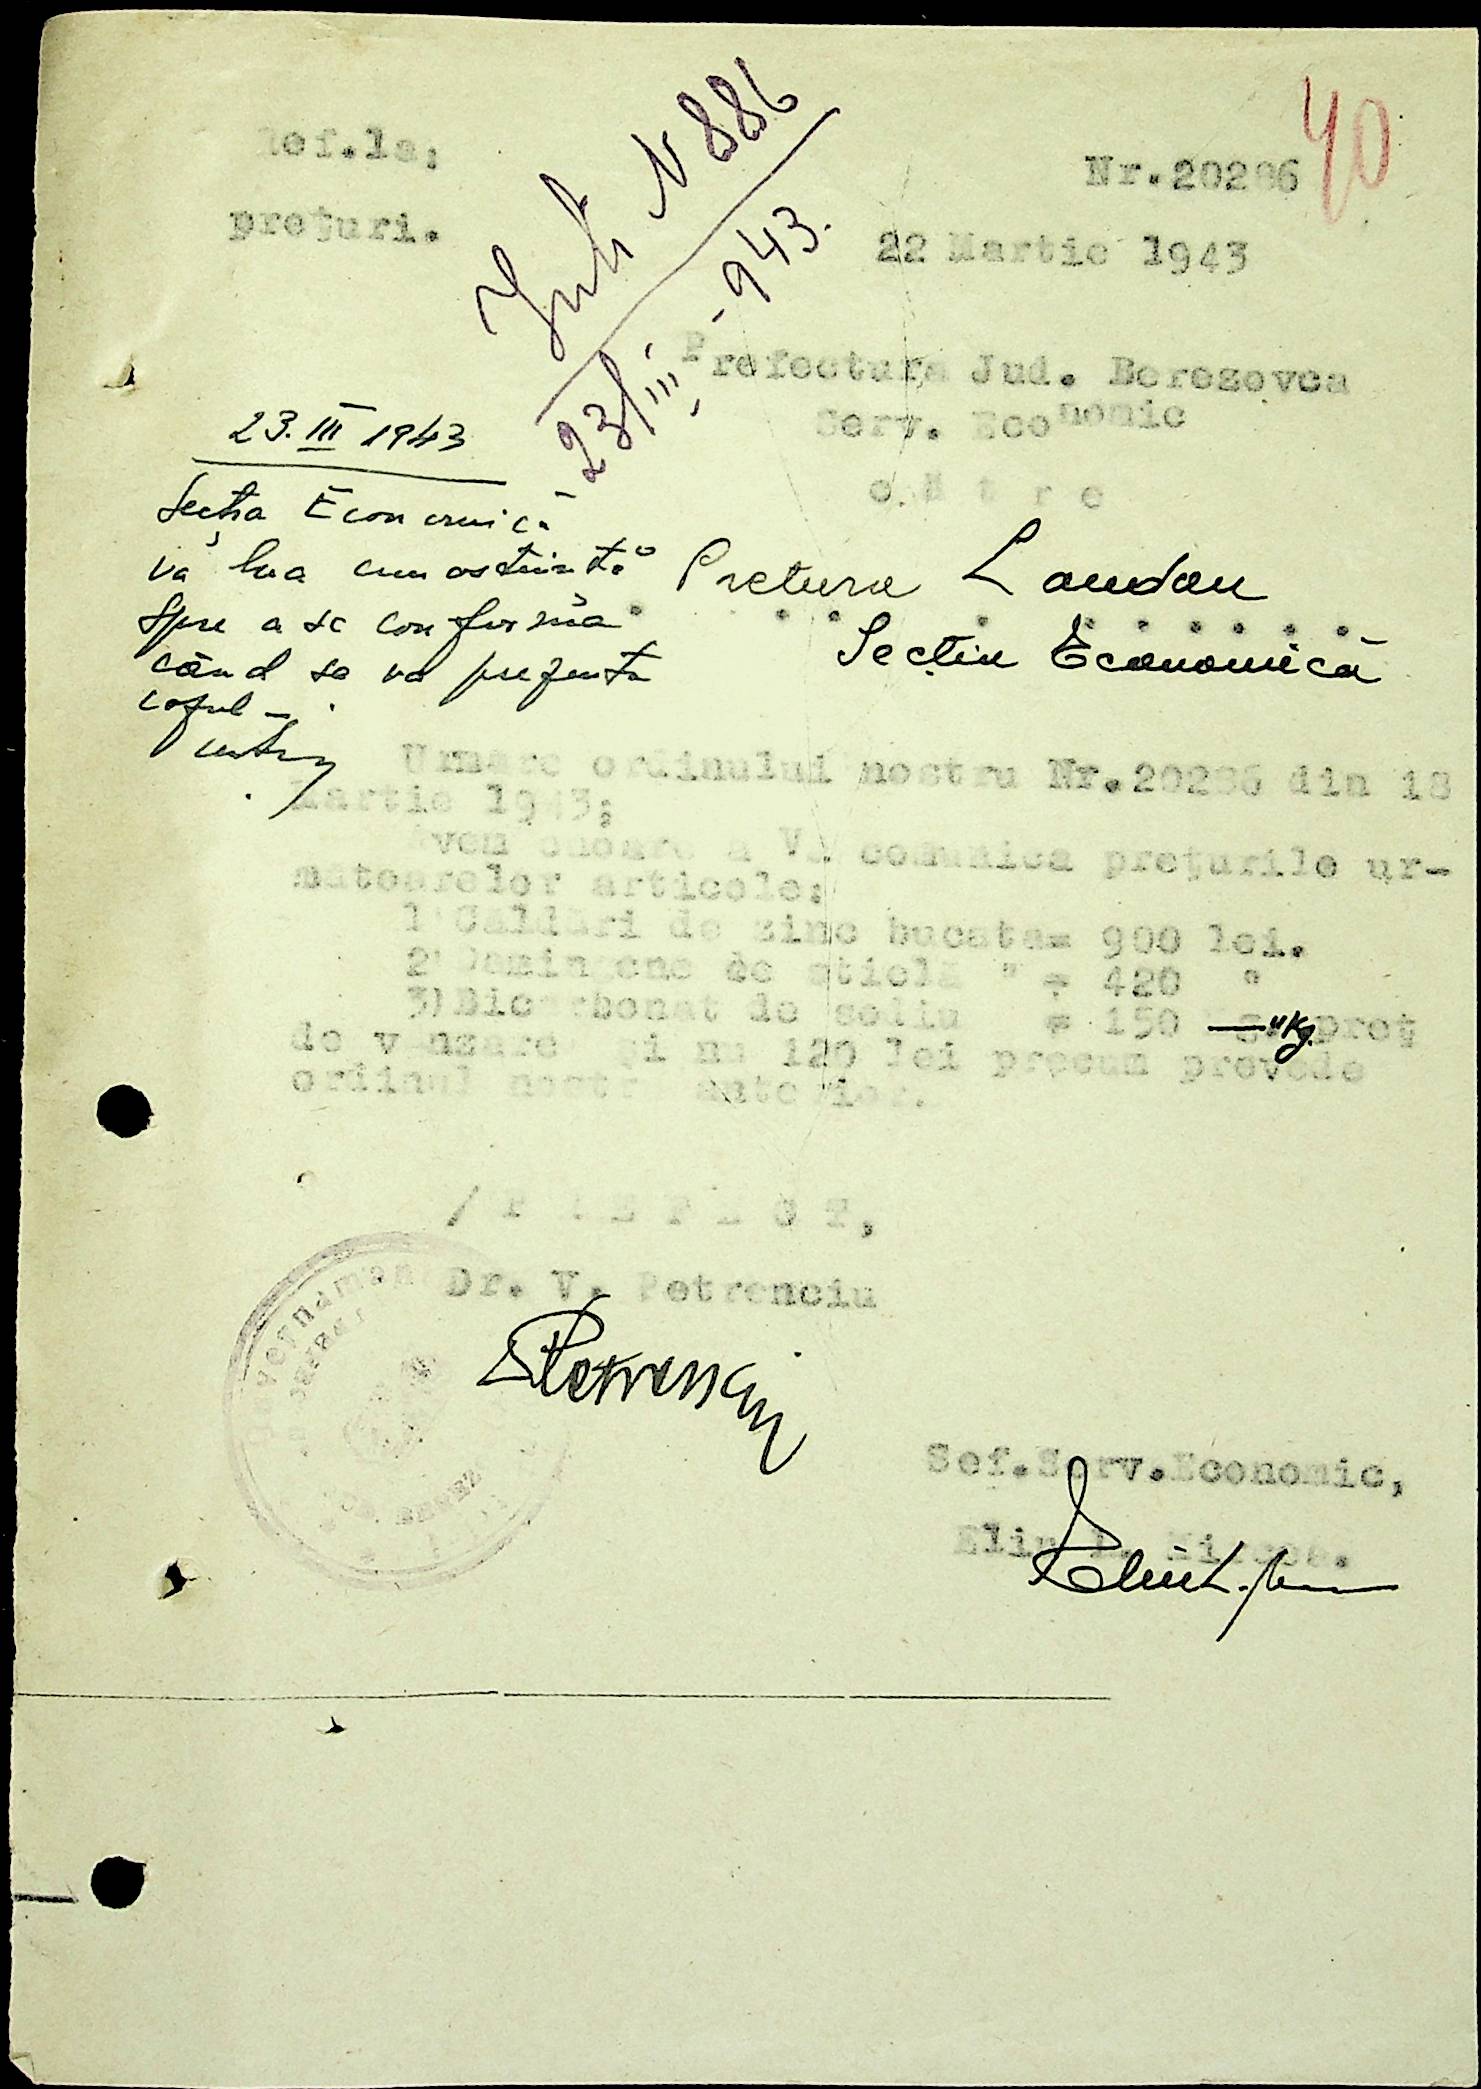 40
Ref.la:
Nr.20286
prețuri.
22 Martie 1943
Nr 886
23/III - 943.
Prefectura Jud. Beresovca
Serv. Economic
către
Pretura Landau
Secția Economică
23. III 1943
Secția Economică
va lua cunoștință
spre a se conforma
când se va prezenta
cazul -
Urmare ordinului nostru Nr.20286 din 18
Martie 1943;
Avem onoare a Vă comunica prețurile ur-
mătoarelor articole:
1) Căldări de zinc bucata= 900 lei.
2) de sticlă " = 420 "
3) Bicarbonat de sodiu = 150 " Kg. preț
de vânzare și nu 120 lei precum prevede
ordinul nostru anterior.
/ P R E F E C T,
Dr. V. Petrenciu
Petrenciu
Sef.Serv.Economic,